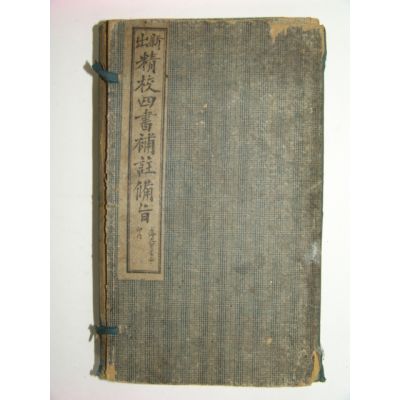 新出
精校四書補註備旨